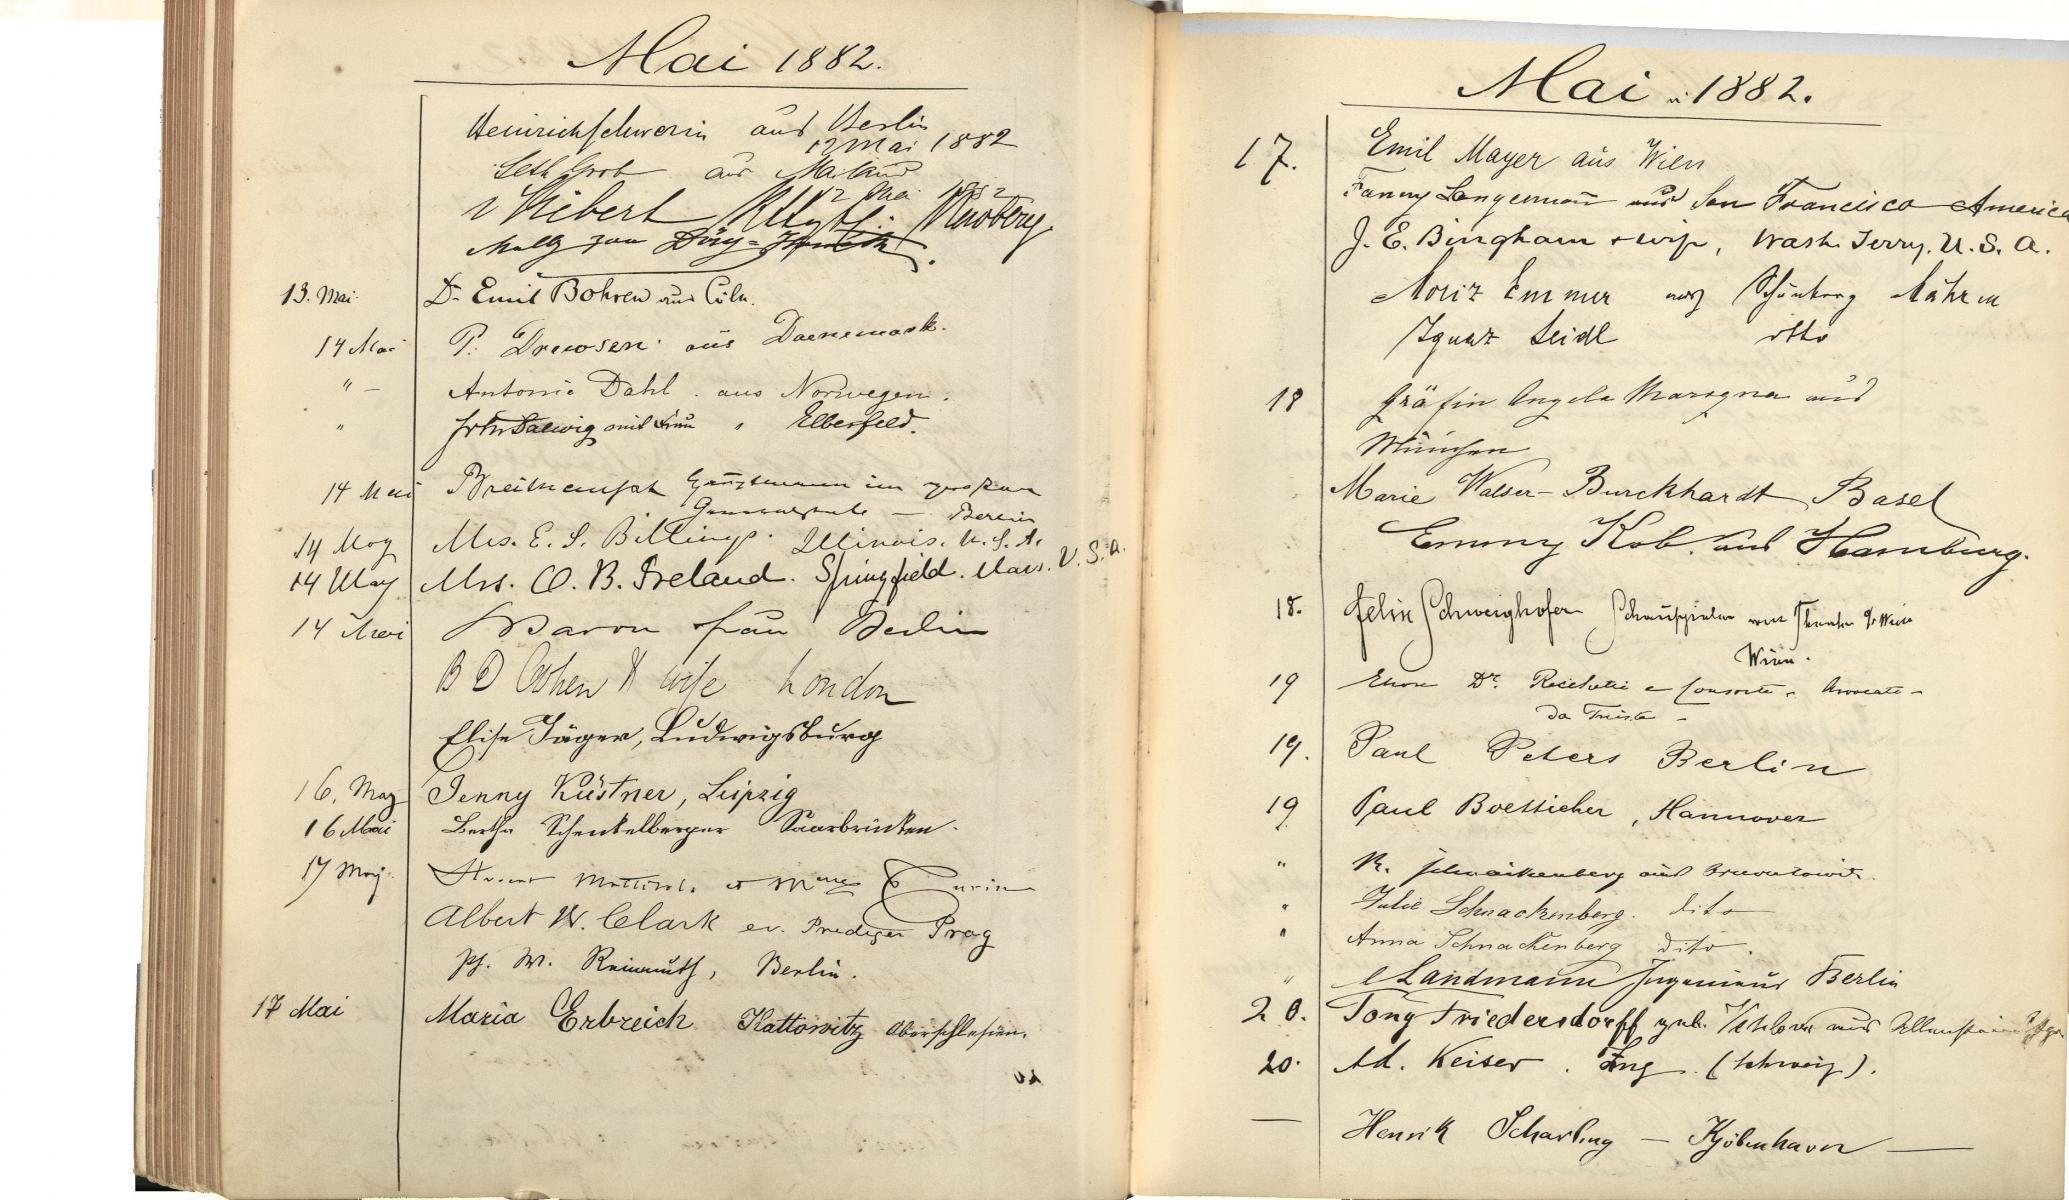 Mai 1882.
Heinrich Schwerin aus Berlin
12 Mai 1882
Seth Grob aus Mailand
12 Mai 1882
13. Mai Dr Emil Bohren aus Cöln.
14 Mai P. Drewsen aus Daenemark.
" – Antonie Dahl. aus Norwegen.
" mit Frau " Elberfeld.
14 Mai Hauptmann im großen
Generalstabe – Berlin
14 May Mrs. E. S. Billings. Illinois. U. S. A.
14 May Mrs. O. B. Ireland. Springfield. Mass. U. S. A.
14 Mai Baron Frau Berlin
B D Cohen & wife London
Elise Jäger, Ludwigsburg
16. May Jenny Küstner, Leipzig
16 Mai Bertha Schenkelberger Saarbrücken.
17 May et Mme Turin
Albert W. Clark ev. Prediger Prag
W. Berlin.
17 Mai Maria Erbreich Kattowitz Oberschlesien.
Mai 1882.
17. Emil Mayer aus Wien
Fanny Langermann aus San Francisco America
J. E. Bingham & wife, Wash. Terry. U. S. A.
Moriz Emmer aus Schönberg Mähren
Ignaz Seidl otto
18 Gräfin Angela Marogna aus
München
Marie Walser-Burckhardt Basel
Emmy Kob. aus Hamburg.
18. Felix Schweighofer Schauspieler vom Theater a/d Wien
Wien.
19 Dr. e consorte Avvocato –
da Trieste –
19. Paul Peters Berlin
19 Paul Boetticher, Hannover
" R. Schnackenberg aus
" Julie Schnackenberg. dito
" Anna Schnackenberg dito.
" Landmann Ingenieur Berlin
20. Tony Friedersdorff geb. aus Allenstein
20. Ad. Keiser. Ing. (Schweiz).
— Henrik Scharling — Kjöbenhavn —